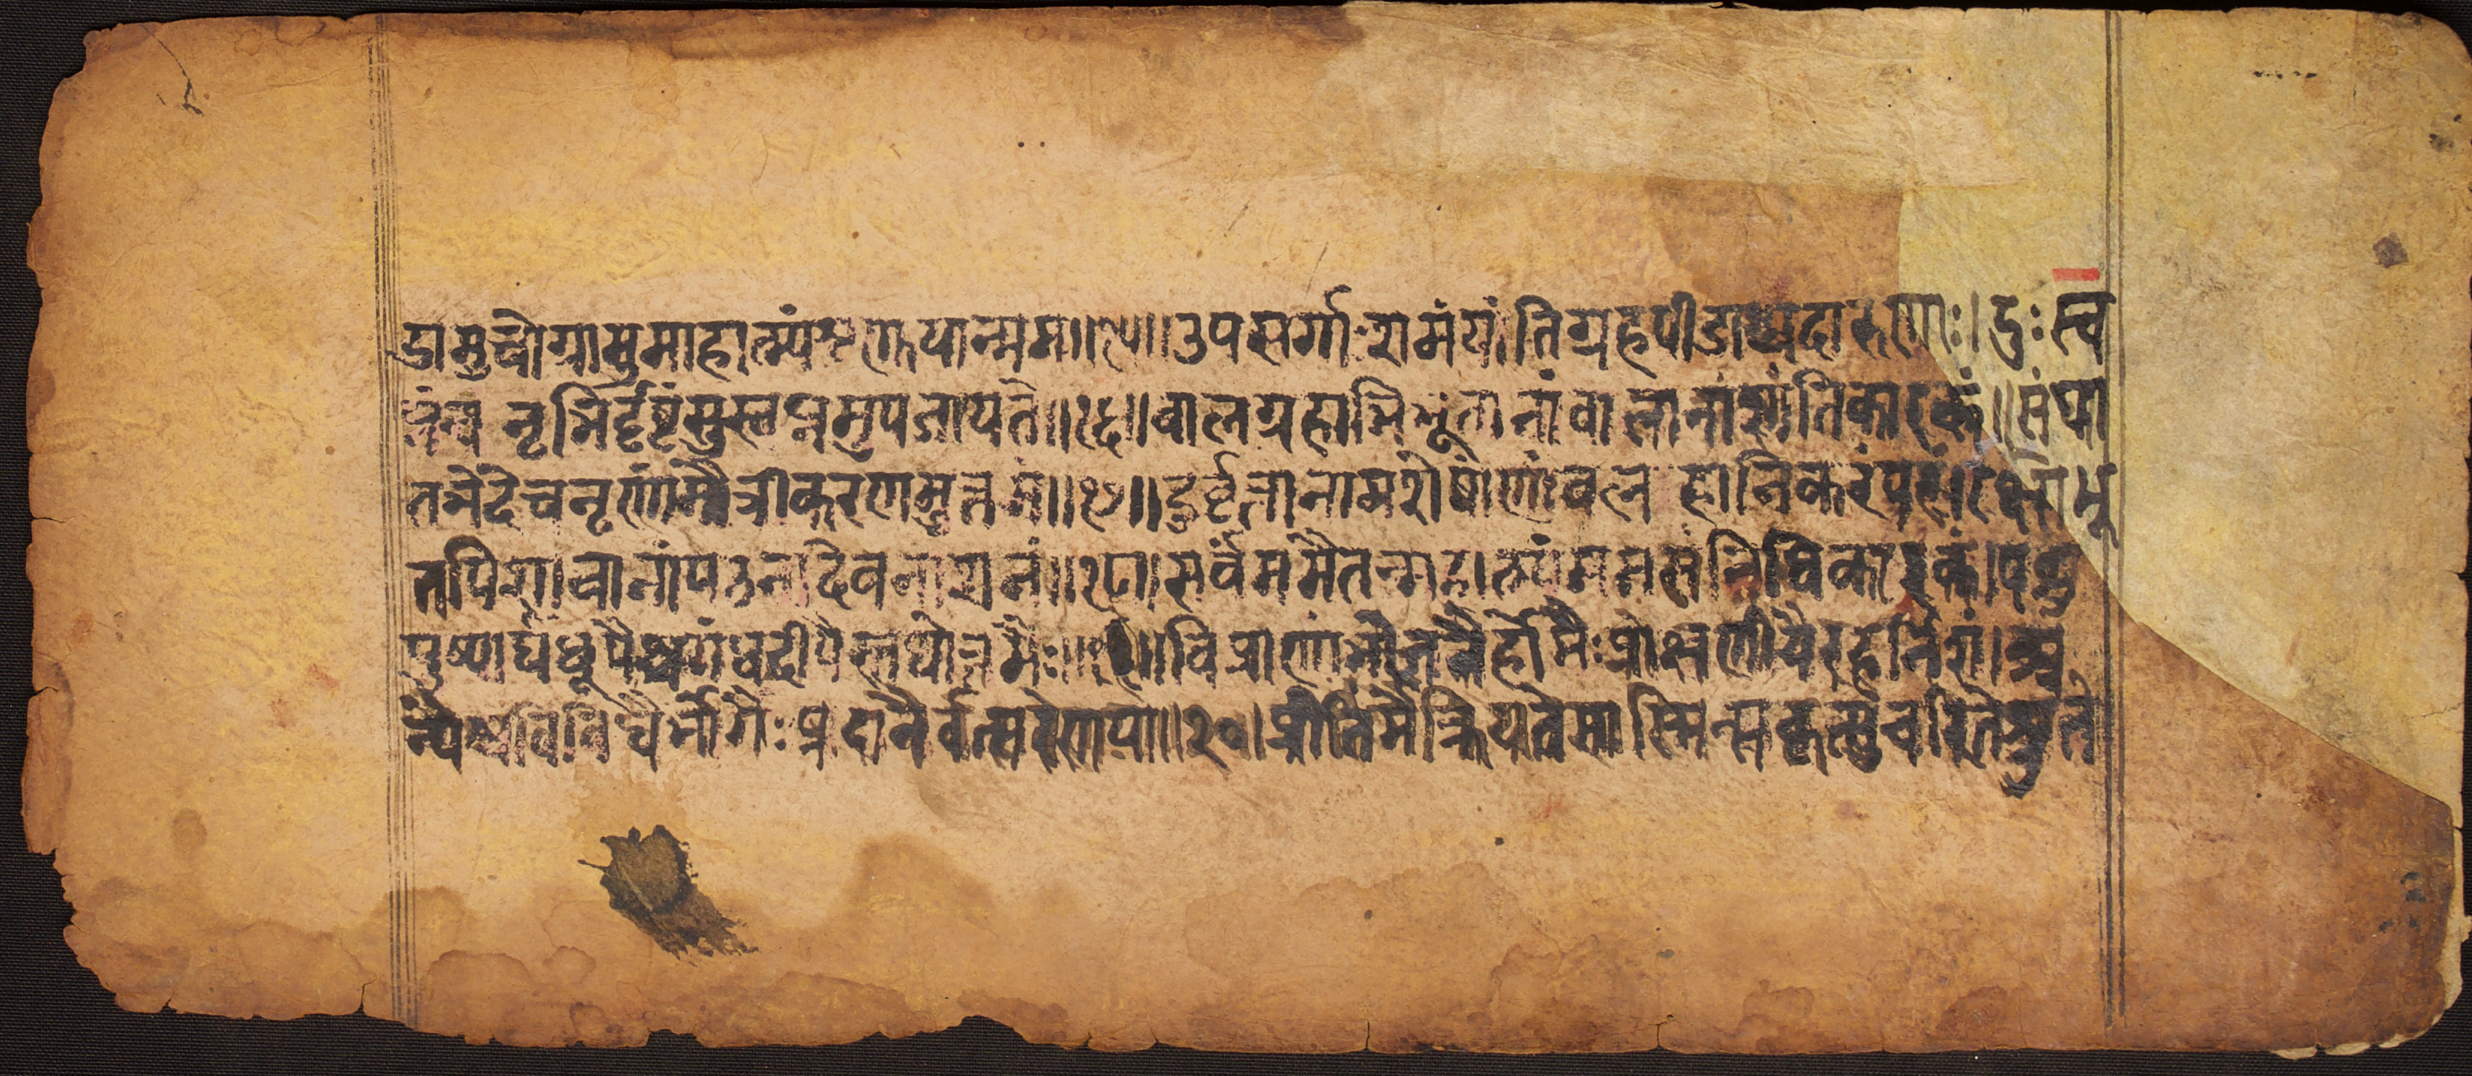 डासुचोग्रासुमाहात्म्यंशृणुयान्मम॥१५॥उपसर्गाःशमंयांतिग्रहपीडाश्चदारुणाः।दुःस्व
प्नंच नृभिर्दृष्टंसुस्वप्नमुपजायते॥१६॥बालग्रहाभिभूतानांबालानांशांतिकारकं॥संघा
तभेदेचनृणांमैत्रीकरणमुत्तमं॥१७॥दुर्वृत्तानामशेषाणांबलहानिकरंपरं।रक्षोभू
तपिशाचानांपठनादेवनाशनं॥१८॥सर्वंममैतन्माहात्म्यंममसंनिधिकारकं।पशु
पुष्पार्घधूपैश्चगंधदीपैस्तथोत्तमैः॥१९॥विप्राणांभोजनैर्होमैःप्रोक्षणीयैरहर्निशं।अ
न्यैश्चविविधैर्भोगैःप्रदानैर्वत्सरेणया॥२०॥प्रीतिर्मेक्रियतेसास्मिन्सकृत्सुचरितेश्रुते